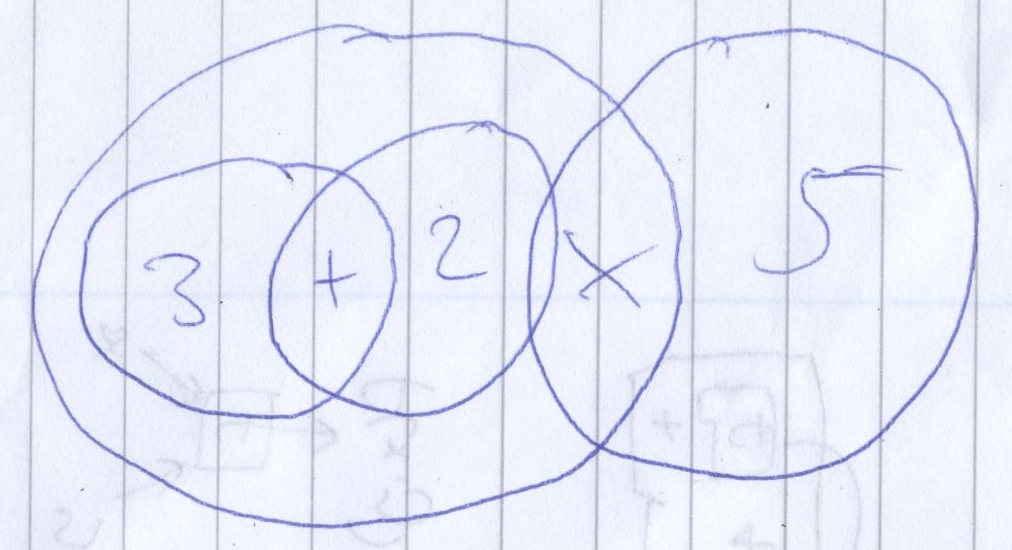 3 + 2 × 5